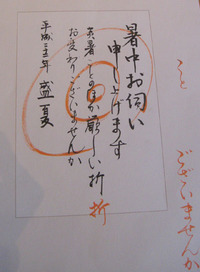 こと
ございませんか
暑中お伺い
申し上げます
炎暑ことのほか厳しい折
お変わりございませんか
平成二十二年 盛夏
折